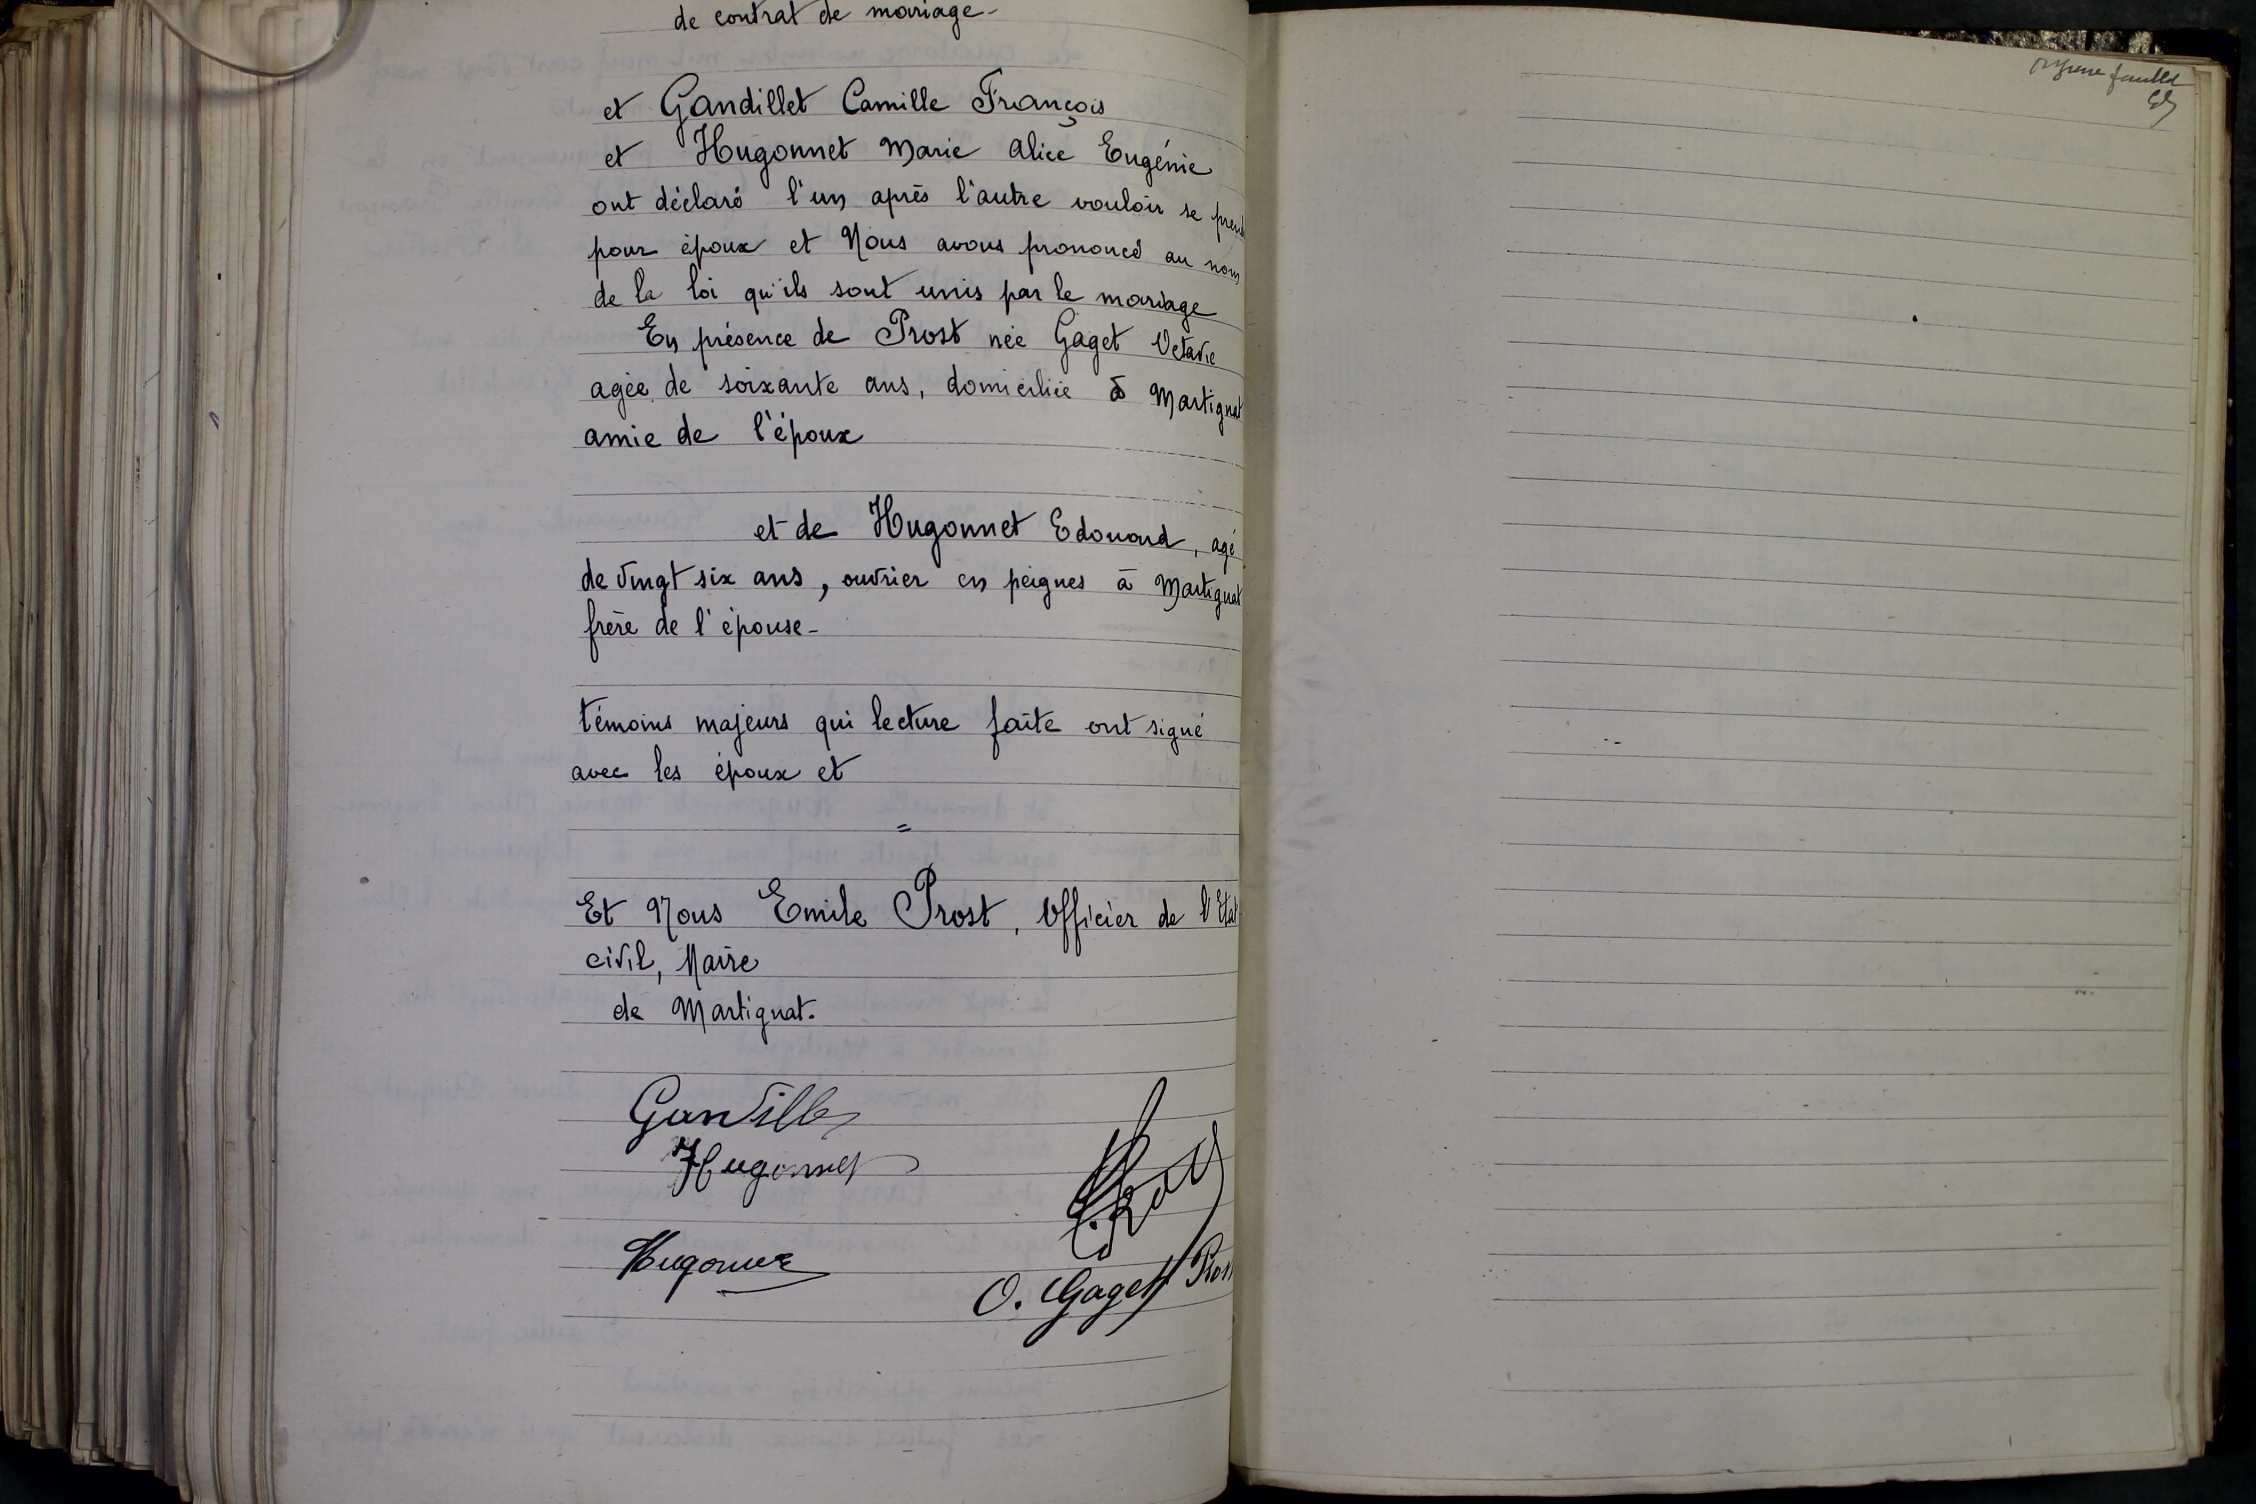 de contrat de mariage -
et Gandillet Camille François
et Hugonnet Marie Alice Eugénie
ont déclaré l'un après l'autre vouloir se prend
pour époux et Nous avons prononcé au nom
de la loi qu'ils sont unis par le mariage
En présence de Prost née Gaget Octavie
agée de soixante ans, domiciliée à Martignat
amie de l'époux
et de Hugonnet Edouard, agé
de vingt six ans, ouvrier en peignes à Martignat
frère de l'épouse -
témoins majeurs qui lecture faite ont signé
avec les époux et
=
Et Nous Emile Prost, Officier de l'Etat
civil, Maire
de Martignat.
Gandillet
Hugonnet
E. Prost
Hugonnet
O. Gaget Prost